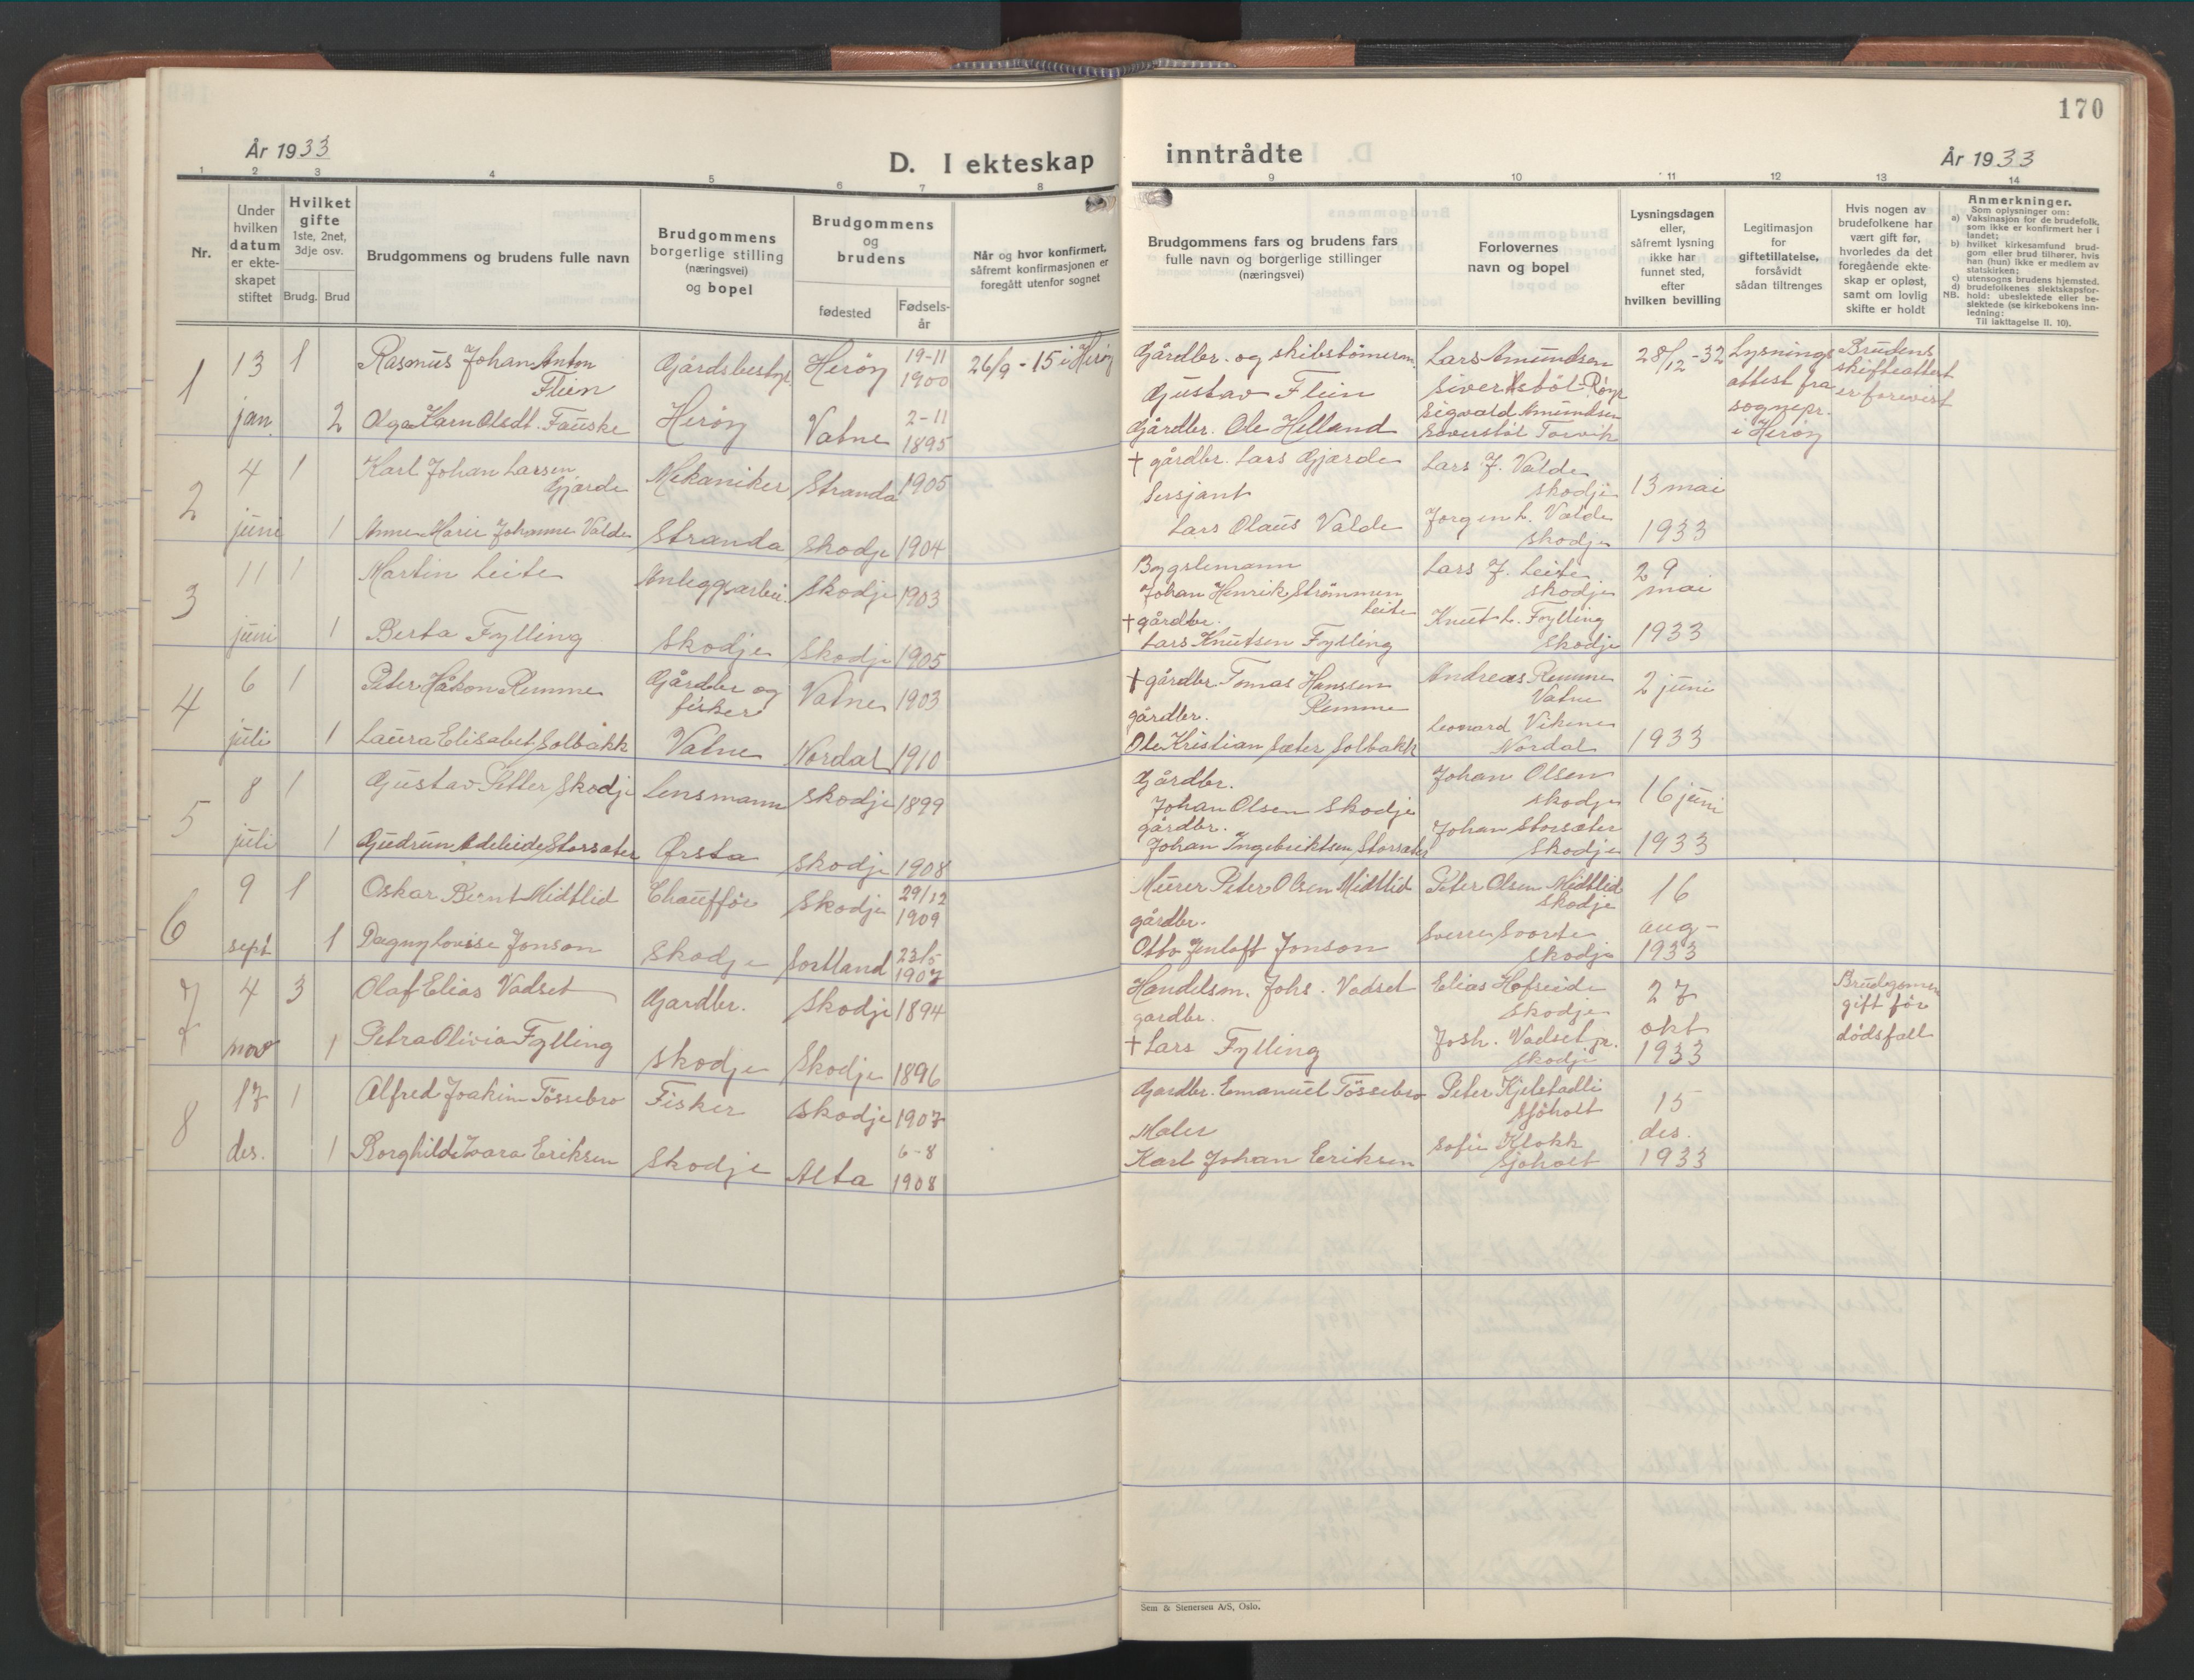 170
År 1933
D. I ekteskap
inntrådte
År 1933
1 2 3 4 5 6 7 8 9 10 11 12 13 14
Nr.
Under
hvilken
datum
er ekte-
skapet
stiftet
Hvilket
gifte
1ste, 2net,
3dje osv.
Brudg. Brud
Brudgommens og brudens fulle navn
Brudgommens
borgerlige stilling
(næringsvei)
og bopel
Brudgommens
og
brudens
fødested
Fødsels-
år
Når og hvor konfirmert,
såfremt konfirmasjonen er
foregått utenfor sognet
Brudgommens fars og brudens fars
fulle navn og borgerlige stillinger
(næringsvei)
Forlovernes
navn og bopel
Lysningsdagen
eller,
såfremt lysning
ikke har
funnet sted,
efter
hvilken bevilling
Legitimasjon
for
giftetillatelse,
forsåvidt
sådan tiltrenges
Hvis nogen av
brudefolkene har
vært gift før,
hvorledes da det
foregående ekte-
skap er opløst,
samt om lovlig
skifte er holdt
Anmerkninger.
Som oplysninger om:
a) Vaksinasjon for de brudefolk,
som ikke er konfirmert her i
landet;
b) hvilket kirkesamfund brud-
gom eller brud tilhører, hvis
han (hun) ikke er medlem av
statskirken;
c) utensogns brudens hjemsted.
d) brudefolkenes slektskapsfor-
NB. hold: ubeslektede eller be-
slektede (se kirkebokens inn-
ledning:
Til iakttagelse II. 10).
1 13 jan. 1
Rasmus Johan Anton
Flein
Gårdsbestyr.
Herøy
Herøy 19-11
1900
26/9 - 15 i Herøy
Gårdbr. og skibstömerm.
Gustav Flein
Lars Amundsen
28/12 - 32
Lysnings
attest fra
sognepr.
i Herøy
Brudens
skifteattest
er forevist
2 Olga Karn Olsdt. Fauske
Vatne 2-11
1895
Gårdbr. Ole Helland
Sigvald Amundsen
2 4 juni 1
Karl Johan Larsen
Gjærde
Mekaniker
Stranda
Stranda 1905
† gårdbr. Lars Gjærde
Lars J. Valde
Skodje
13 mai
1933
1 Anne Marie Johanne Valde
Skodje 1904
Sersjant
Lars Olaus Valde
Jørgen L. Valde
Skodje
3 11 juni 1
Martin Leite
Anleggsarbei.
Skodje
Skodje 1903
Bygslemann
Johan Henrik Strömmen
Leite
Lars J. Leite
Skodje
29
mai
1933
1 Berta Fylling
Skodje 1905
† gårdbr.
Lars Knutsen Fylling
Knut L. Fylling
Skodje
4 6 juli 1
Peter Håkon Remme
Gårdbr og
fisker
Vatne
Vatne 1903
† gårdbr. Tomas Hanssen
Remme
Andreas Remme
Vatne
2 juni
1933
1 Laura Elisabet Solbakk
Nordal 1910
gårdbr.
Ole Kristian Sæter Solbakk
Leonard Vikene
Nordal
5 8 juli 1
Gustav Petter Skodje
Lensmann
Ørsta
Skodje 1899
Gårdbr.
Johan Olsen Skodje
Johan Olsen
Skodje
16 juni
1933
1 Gudrun Adeleide Storsæter
Skodje 1908
gårdbr.
Johan Ingebriktsen Storsæter
Johan Storsæter
Skodje
6 9 sept 1
Oskar Bernt Midtlid
Chauffør
Skodje
Skodje 29/12
1909
Murer Peter Olsen Midtlid
Peter Olsen Midtlid
Skodje
16
aug -
1933
1 Dagny Lovisse Jonson
Sortland 23/5
1907
gårdbr.
Otto Jenloft Jonson
Sverre Svorte
Skodje
7 4 nov 3
Olaf Elias Vadset
Gardbr.
Skodje
Skodje 1894
Handelsm. Johs. Vadset
Elias Hofseide
Skodje
27
okt
1933
Brudgommen
gift før
dödsfall
1 Petra Olivia Fylling
Skodje 1896
gardbr.
† Lars Fylling
Josh. Vadset jr.
Skodje
8 17 des. 1
Alfred Joakim Tössebro
Fisker
Skodje
Skodje 1907
Gardbr. Emanuel Tössebro
Peter Kjelstadli
Sjöholt
15
des.
1933
1 Borghild Ivara Eriksen
Alta 6-8
1908
Maler
Karl Johan Eriksen
Sofie Klokk
Sjøholt
Sem & Stenersen A/S, Oslo.